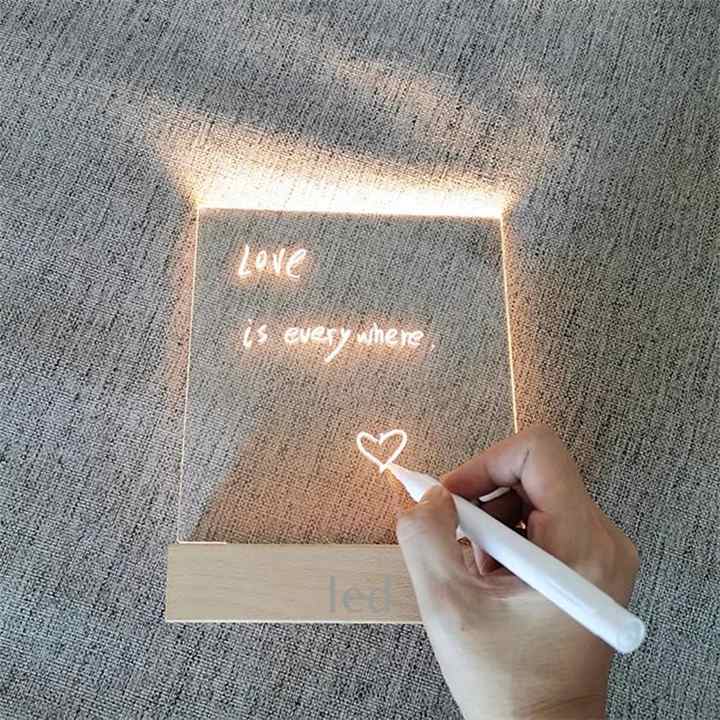 Love
is everywhere.
led